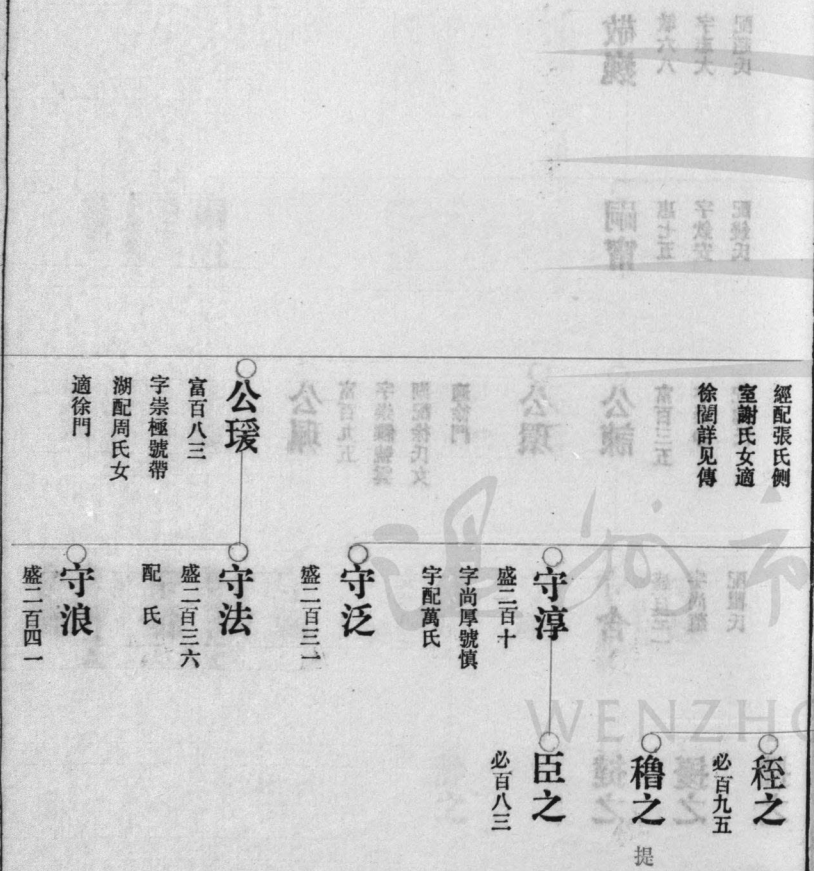 經配張氏側
室謝氏女適
徐闇詳见傳
公瑗
富百八三
字崇極號帶
湖配周氏女
適徐門
守淳
盛二百十
字尚厚號慎
宇配萬氏
守泛
盛二百三一
守法
盛二百三六
配　氏
守浪
盛二百四一
秷之
必百九五
穞之
提
臣之
必百八三
WENZHO